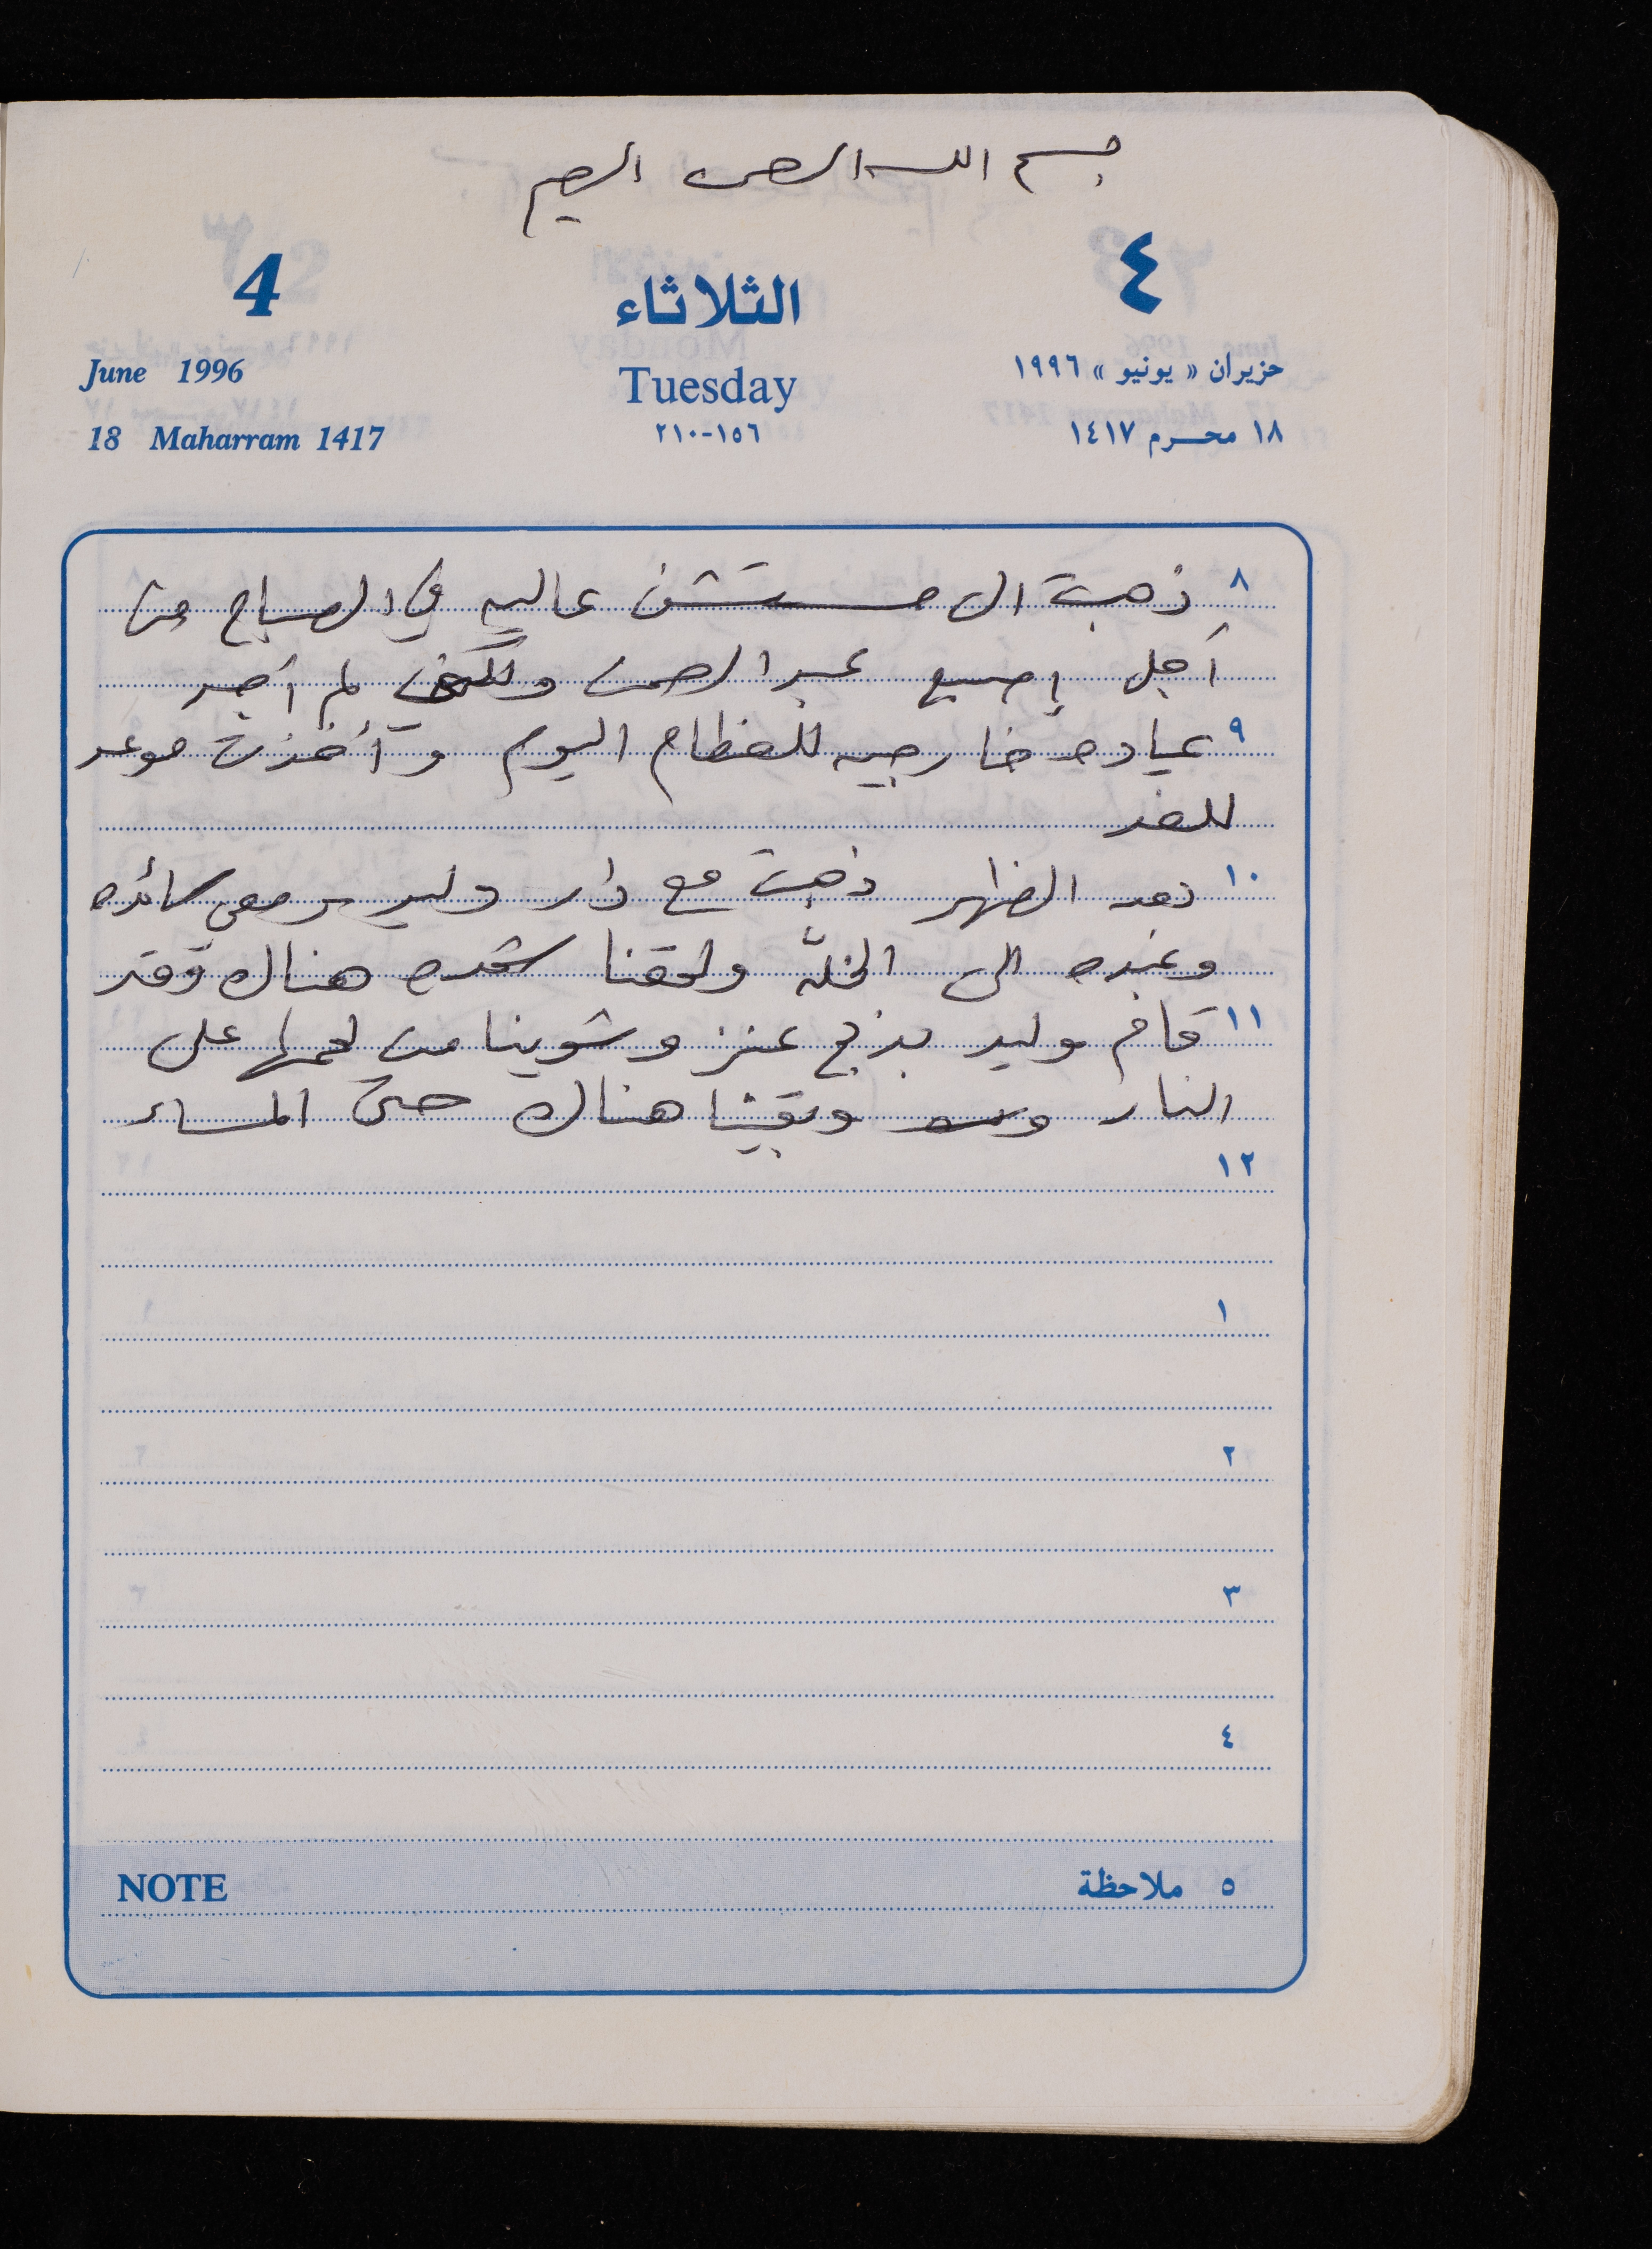 بسم الله الرحمن الرحيم
4 الثلاثاء ٤
June 1996 Tuesday حزيران « يونيو » ١٩٩٦
18 Maharram 1417 ١٥٦-٢١٠ ١٨ محرم ١٤١٧
٨ ذهبت الى مستشفى عاليه في الصباح من
أجل إصبع عبد الرحمن ولكن لم أجد
٩ عياده خارجيه للعظام اليوم وأخذت موعد
للغد
١٠ بعد الظهر ذهبت مع دار وليد ومعي سائده
وعبده الى الخلّه ولحقنا هناك وقد
١١ قام وليد بذبح عنز وشوينا من لحمها على
النار وبقينا هناك حتى المساء
١٢
١
٢
٣
٤
NOTE ٥ ملاحظة